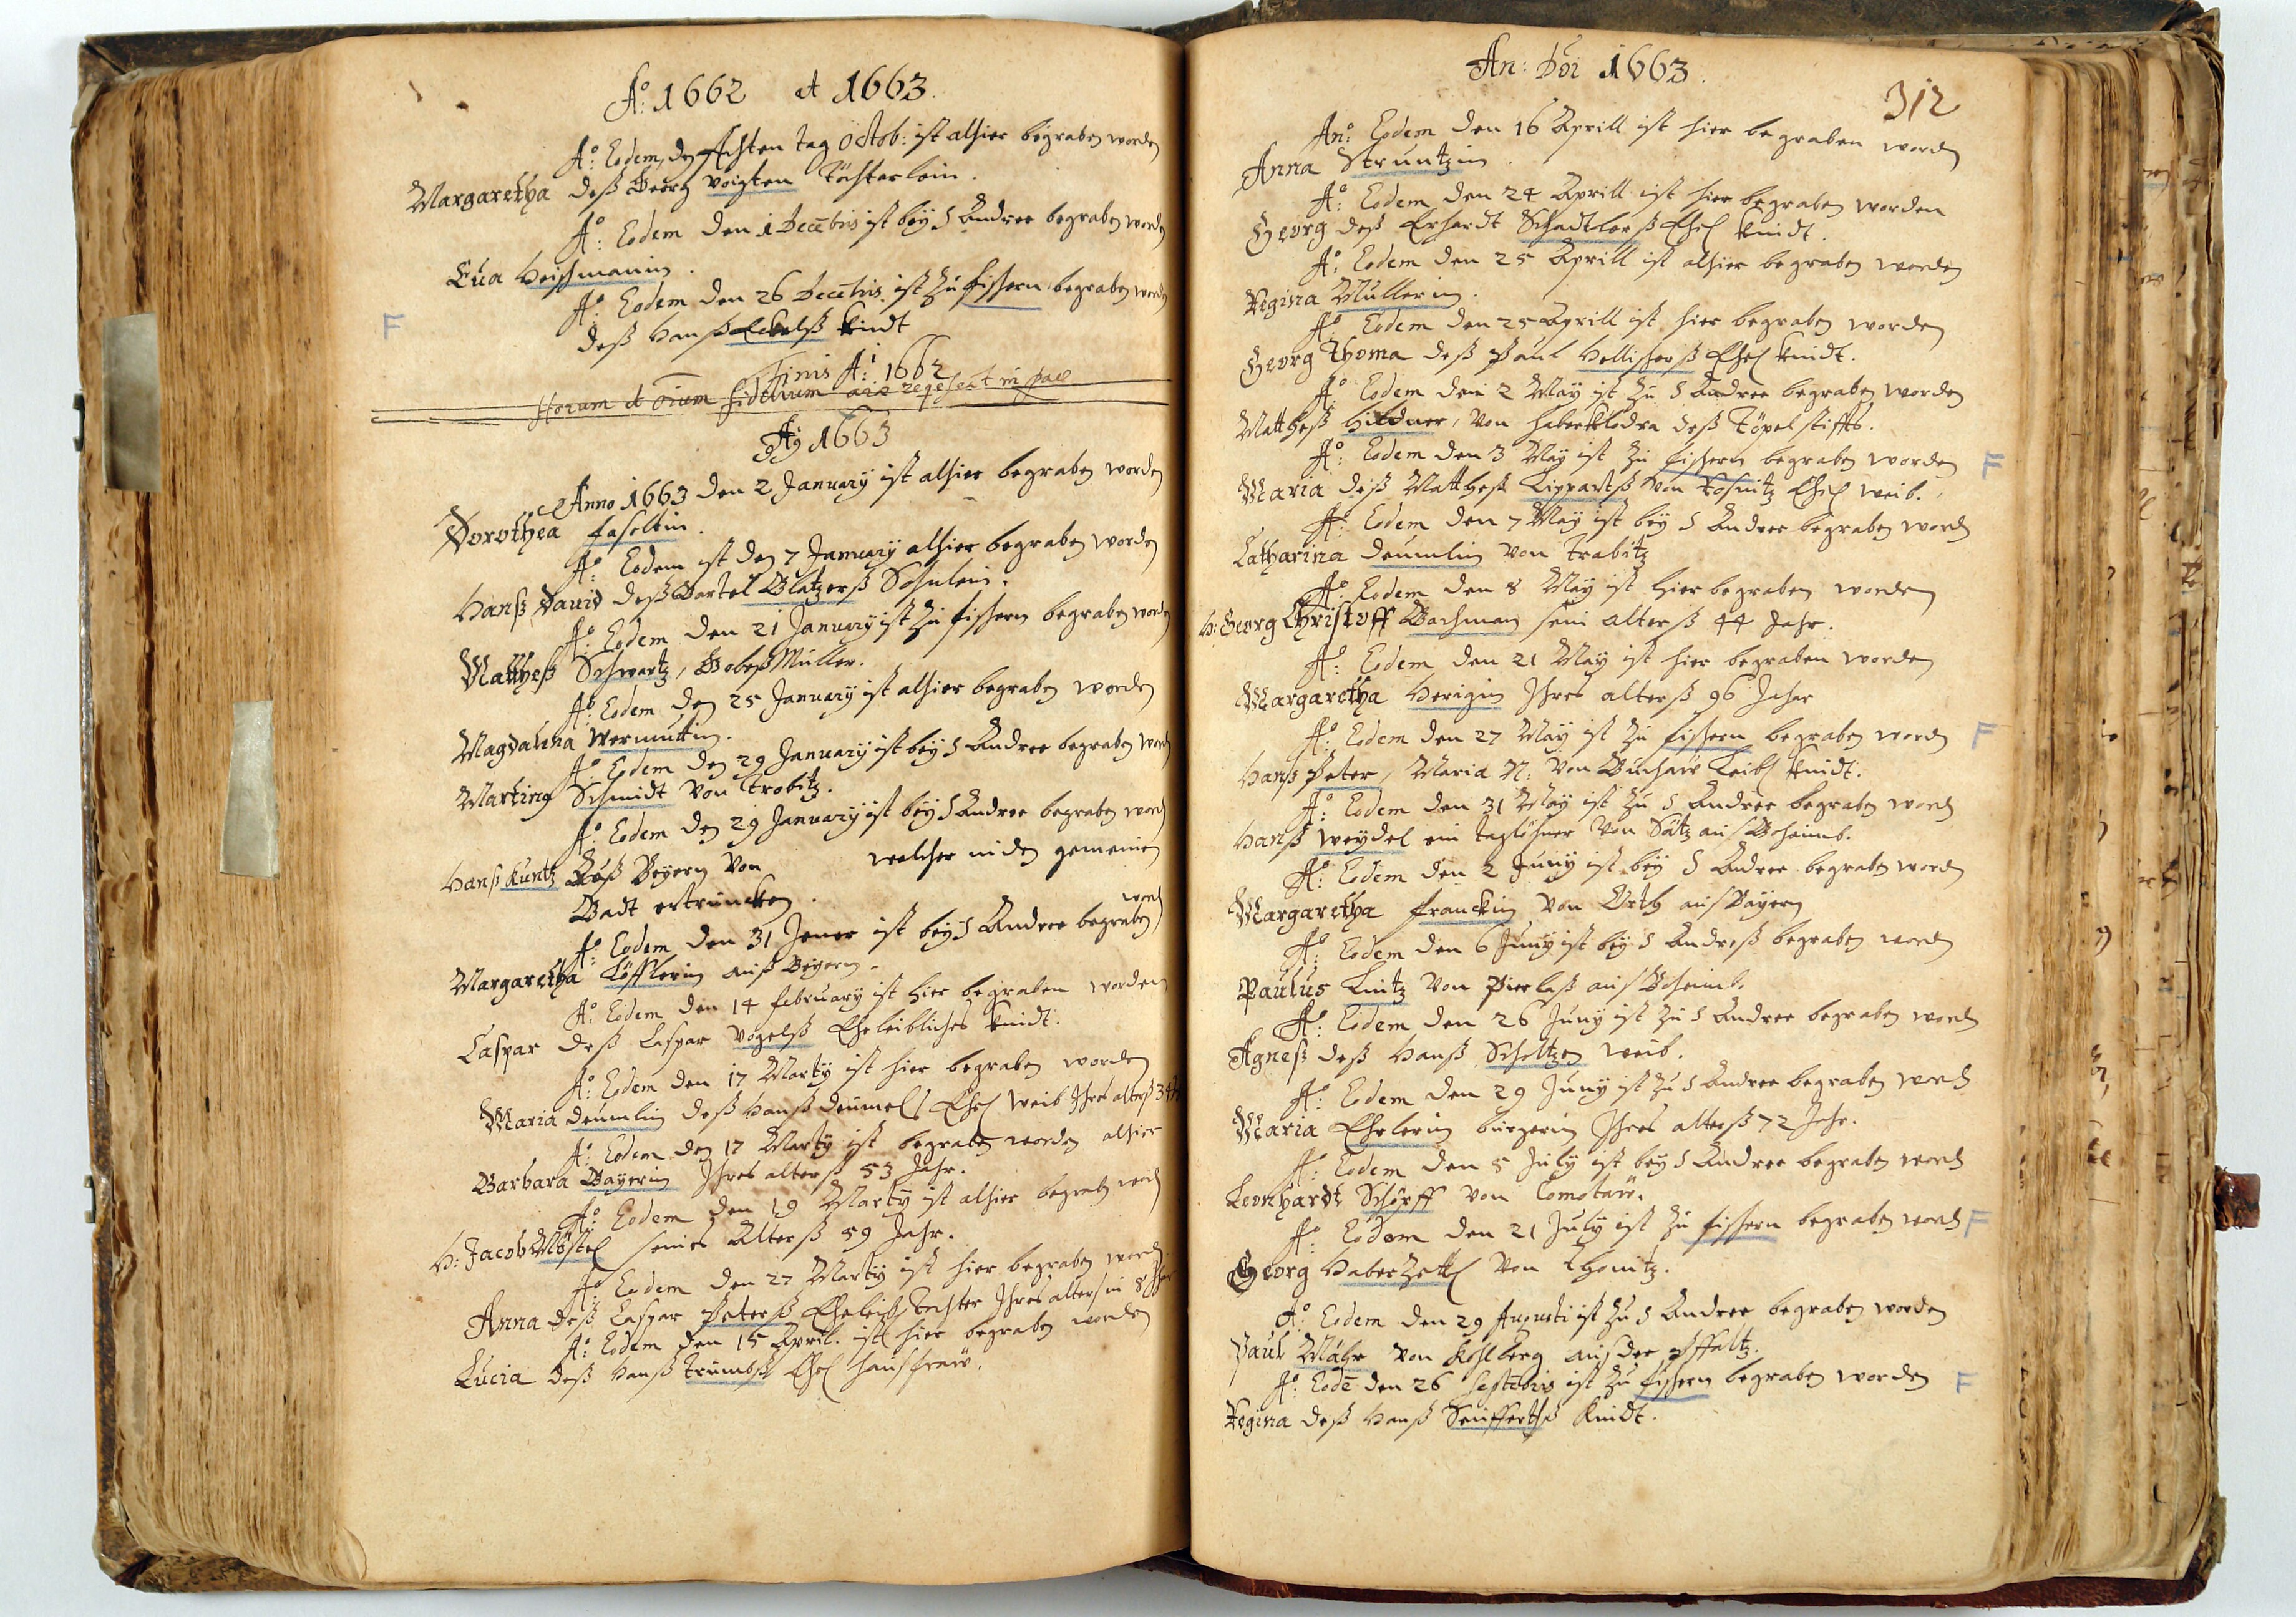 Aº: 1662 et 1663.
Aº: Eodem, den Achten tag Octob: ist alhier begraben worden
Margaretha deß Georg Voigten Töchterlein.
Aº: Eodem den 1 Decēbris ist beÿ S Andree begraben worden
Eua
Aº: Eodem den 26 Decēbris ist zu fischern begraben worden
F
deß Hanß Eckelß Kindt
Finis Aº: 1662
Horum et oium fidelium aīæ reqescāt in pace
Aº 1663
Anno 1663 den 2 Januarÿ ist alhier begraben worden
Dorothea faßoltin.
Aº: Eodem ist den 7 Januarÿ alhier begraben worden
Hanß Dauid deß Bartel Blatzerß Sohnlein.
Aº: Eodem den 21 Januarÿ ist zu fischern begraben worden
Matheß Schwartz, Müller.
Aº: Eodem den 25 Januarÿ ist alhier begraben worden
Magdalena Wermutin.
Aº: Eodem den 29 Januarÿ ist beÿ S Andree begraben word
Marting Schmidt von Trobitz.
Aº: Eodem den 29 Januarÿ ist beÿ S Andree begraben word
Hanß Kuntz Auß Beÿern von welcher in den gemeinen
Badt ertruncken.
word
Aº: Eodem den 31 Jener ist beÿ S Andree begraben
Margaretha Löfflerin auß Beÿern.
Aº: Eodem den 14 februarÿ ist hier begraben worden
Caspar deß Caspar Vogelß Eheleibliches Kindt.
Aº: Eodem den 17 Martÿ ist hier begraben worden
Maria deümlin deß Hanß deümels Ehel Weib Ihres alterß 34
Aº: Eodem den 17 Martÿ ist begraben worden alhier
Barbara Baÿerin Ihres alterß 53 Jahr.
Aº: Eodem den 19 Martÿ ist alhier begraben word
H: Jacob Möstel seines Alterß 59 Jahr.
Aº: Eodem den 27 Martÿ ist hier begraben word
Anna deß Caspar Peterß Eheleibl Tochter Ihres alters in 8 Jhar
Aº: Eodem den 15 April. ist hier begraben worden
Lucia deß Hanß Trümbß Ehel Haußfraw.
An: Dōi 1663.
312
Anº: Eodem den 16 Aprill ist hier begraben worden
Anna Struntzin.
Aº: Eodem den 24 Aprill ist hier begraben worden
Georg deß Erhardt Schadtlerß Ehel Kindt.
Aº: Eodem den 25 Aprill ist alhier begraben worden
Regina Müllerin.
Aº: Eodem den 25 Aprill ist hier begraben worden
Georg Thoma deß Paul Hollischerß Ehel Kindt.
Aº: Eodem den 2 Maÿ ist zu S Andree begraben worden
Mattheß Hildner, von Haberkladra deß Töpel stiffts.
Aº: Eodem den 3 Maÿ ist zu fischern begraben worden F
Maria deß Mattheß Lippartß von Rosnitz Ehel weib.
Aº: Eodem den 7 Maÿ ist beÿ S Andree begraben word
Catharina deumlin von Trabitz
Aº: Eodem den 8 Maÿ ist hier begraben worden
H: Georg Christoff Bachman sein alterß 44 Jahr.
Aº: Eodem den 21 Maÿ ist hier begraben worden
Margaretha Herigin Ihres alterß 96 Jahr
Aº: Eodem den 27 Maÿ ist zu fischern begraben worden F
Hanß Peter, Maria N: von Buchaw Leibl Kindt.
Aº: Eodem den 31 Maÿ ist zu S Andree begraben word
Hanß Weÿdel ein taglöhner von Sätz auß Boheimb.
Aº: Eodem den 2 Junÿ ist beÿ S Andree begraben word
Margaretha franckin von Orth auß Baÿern
Aº: Eodem den 6 Junÿ ist beÿ S Andreß begraben worden
Paulus Lintz von Pirelaß auß Boheimb.
Aº: Eodem den 26 Junÿ ist zu S Andree begraben word
Agneß deß Hanß Scholtzen weib.
Aº: Eodem den 29 Junÿ ist zu S Andree begraben word
Maria Ehrlerin burgerin Ihres alterß 72 Jahr.
Aº: Eodem den 5 Julÿ ist beÿ S Andree begraben word
Leonhardt Schörff von Comotaw.
Aº: Eodem den 21 Julÿ ist zu fischern begraben word F
Georg Haberzettl von Thonitz.
Aº: Eodem den 29 Augusti ist zu S Andree begraben worden
Paul Mähr von Kohlberg auß der Pffaltz.
Aº: Eodē den 26 Septēbris ist zu fischern begraben worden F
Regina deß Hanß Seüffertß Kindt.